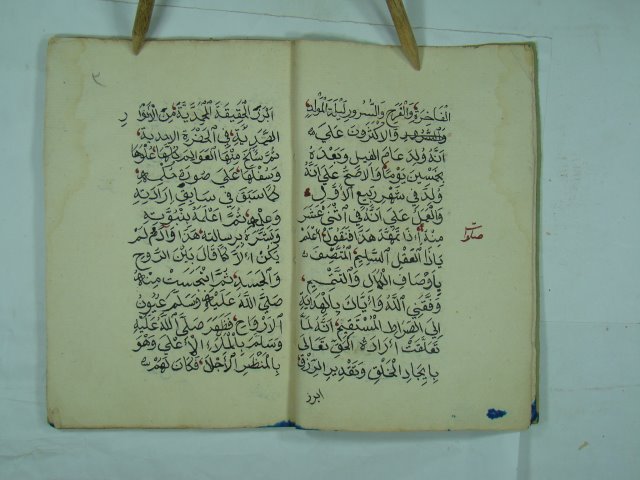 الفاخرة والفرح والسرور ليلة المولد
والمشهور والاكثرون على
انه ولد عام الفيل وبعده
بخمسين يوما والاصح على انه
ولد في شهر ربيع الاول
والعمل على انه في اثنى عشر
منه اذا تمهد هذا فنقول اعلم
صلوات
ياذا العقل السليم المتصف
باوصاف الكمال والتتميم
وفقني الله واياك بالهداية
الى الصراط المستقيم انه لما
تعلقت ارادة الحق تعالى
بايجاد الخلق وتقدير الرزق
ابرز
٢
ابرز الحقيقة المحمدية من الانوار
الصمدية في الحضرة الاحدية
ثم سلخ منها العوالم كلها علوها
وسفلها على صورة حكمه
كما سبق في سابق ارادته
وعلمه ثم اعلمه بنبوته
وبشره برسالته هذا وآدم لم
يكن الا كما قال بين الروح
والجسد ثم انبجست منه
صلى الله عليه وسلم عيون
الارواح فظهر صلى الله عليه
وسلم بالملاء الاعلى وهو
بالمنظر الاجلى فكان لهم